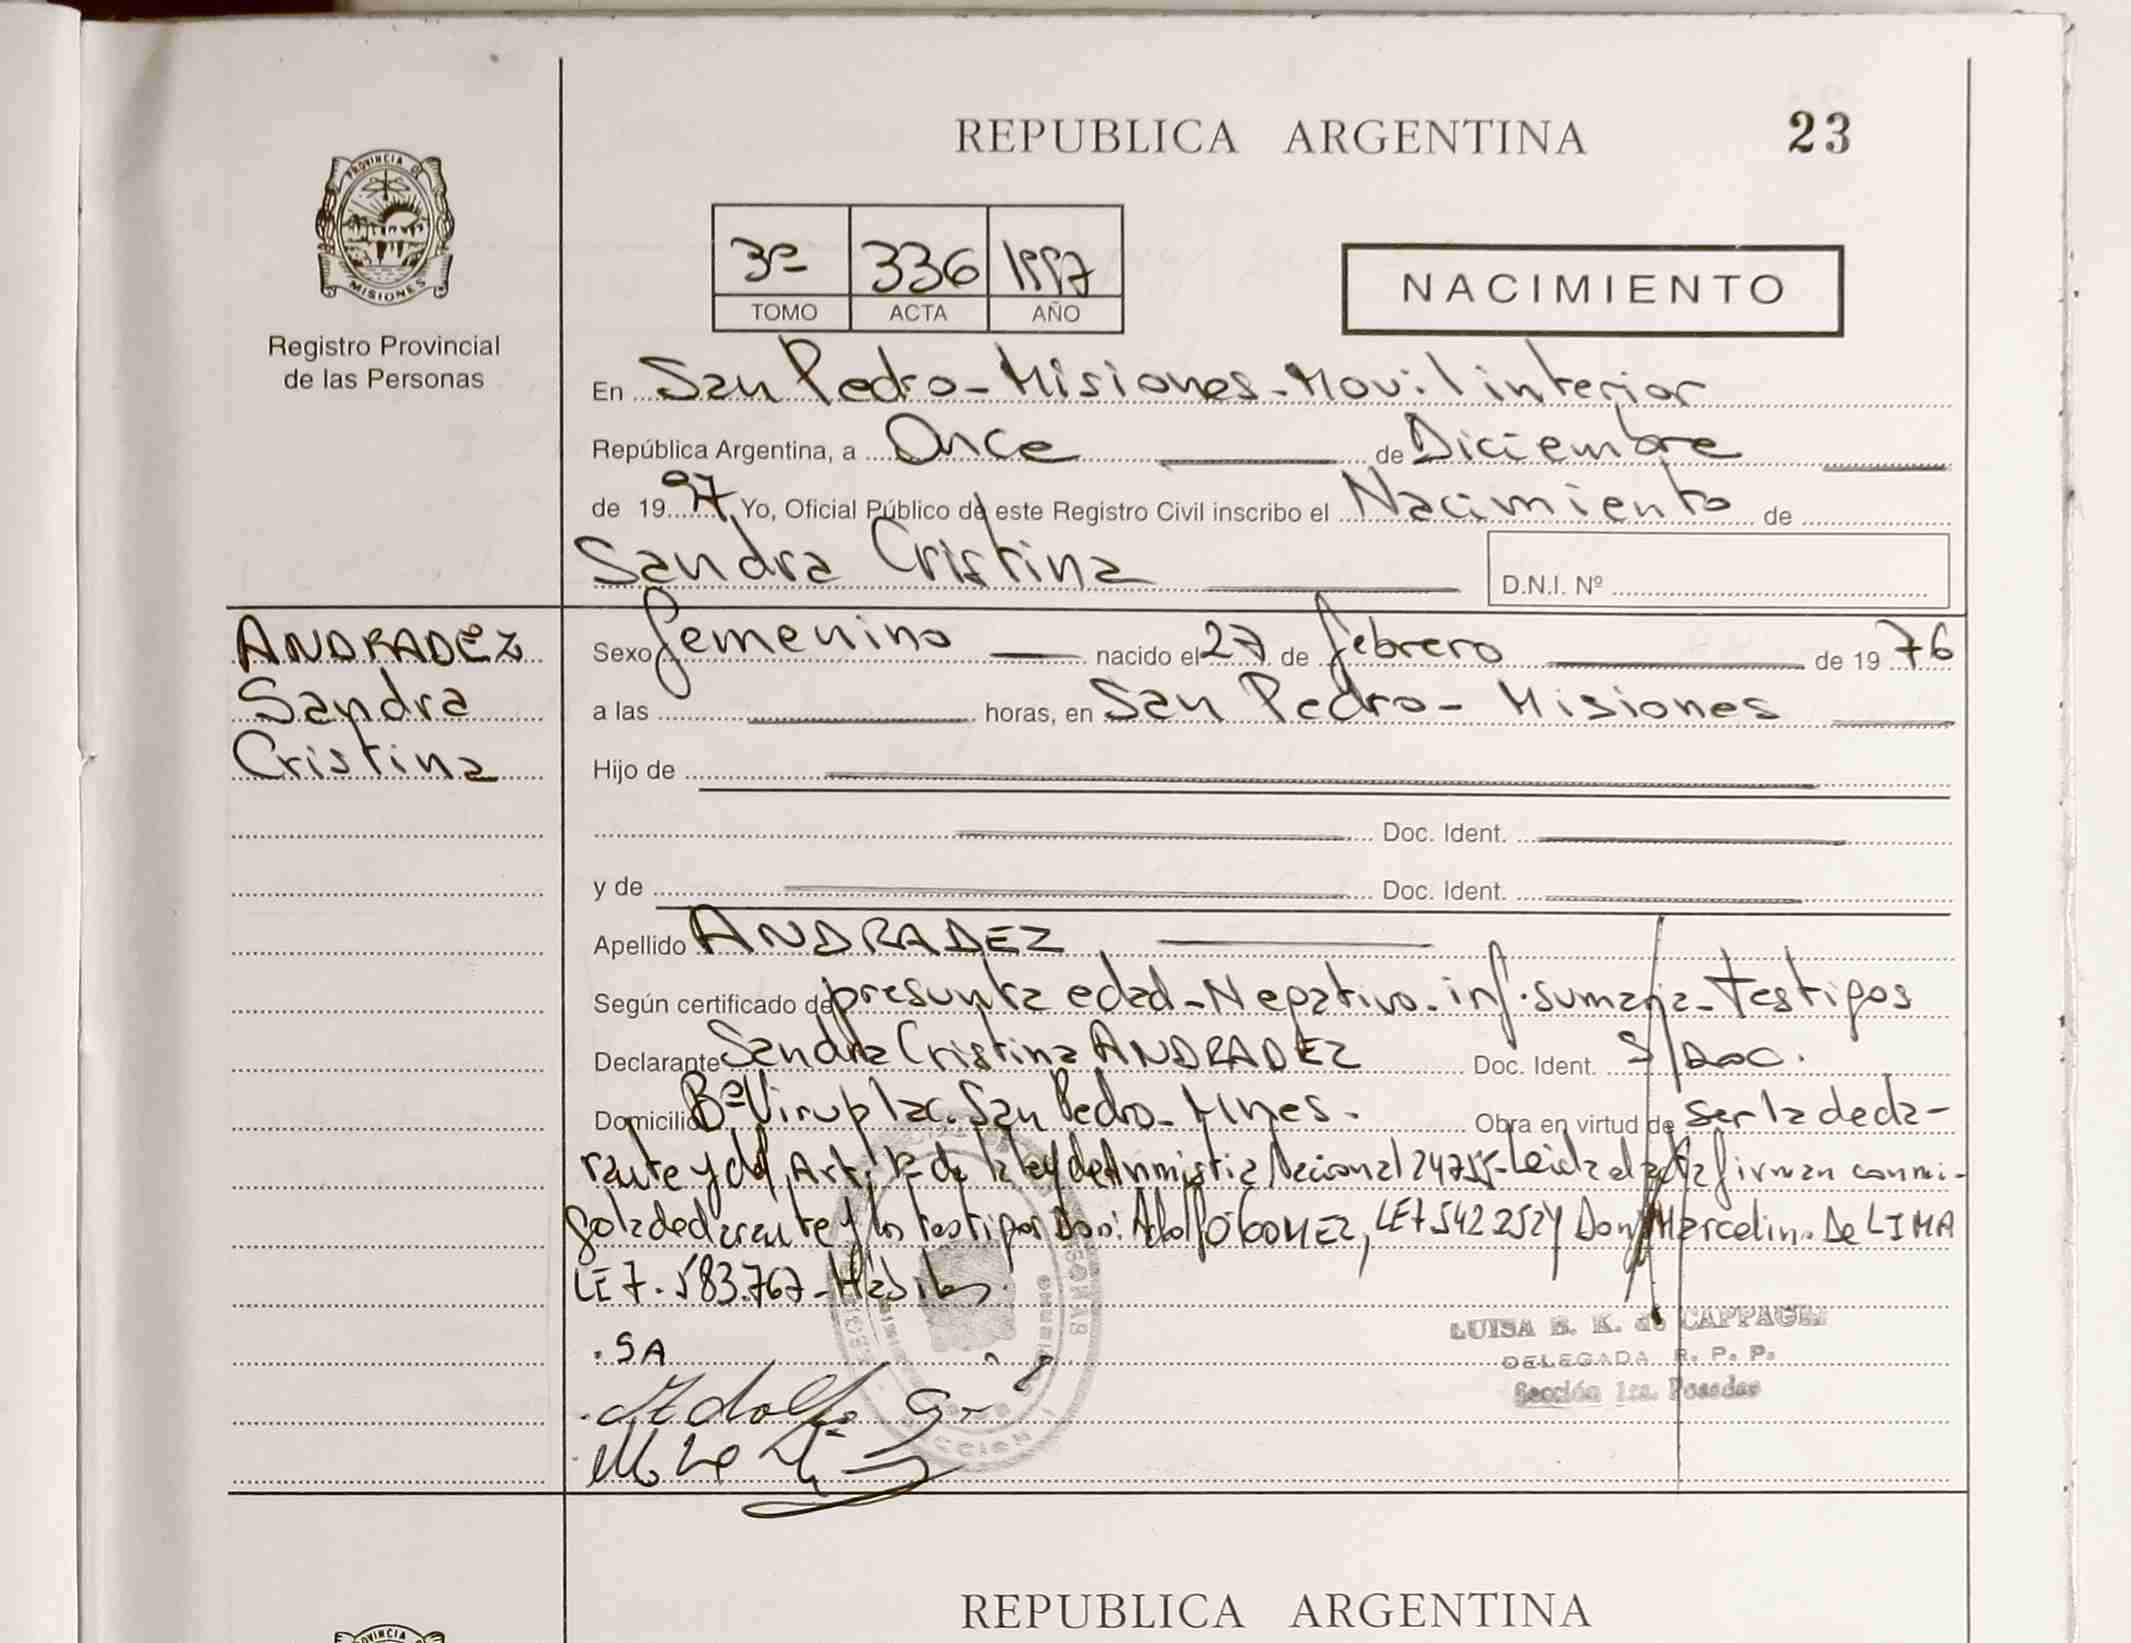 REPUBLICA ARGENTINA
23
PROVINCIA DE
MISIONES
Registro Provincial
de las Personas
3º 336 1997
TOMO ACTA AÑO
NACIMIENTO
En San Pedro - Misiones - Movil interior
República Argentina, a Once de Diciembre
de 1997, Yo, Oficial Público de este Registro Civil inscribo el Nacimiento de
Sandra Cristina
D.N.I. Nº
ANDRADEZ
Sandra
Cristina
Sexo femenino nacido el 27 de febrero de 1976
a las horas, en San Pedro - Misiones
Hijo de
Doc. Ident.
y de Doc. Ident.
Apellido ANDRADEZ
Según certificado de presunta edad - Negativo - inf. sumaria - Testigos
Declarante Sandra Cristina ANDRADEZ Doc. Ident. S/Doc.
Domicilio Bº Viruplac. San Pedro - Mnes. Obra en virtud de ser la decla-
rante y del Art. 1º de la ley de Anmistia Nacional 24755 - Leida el acta firman conmi-
go la declarante y los testigos Don: Adolfo GOMEZ, LE 7.542.252 y Don Marcelino De LIMA
LE 7.583.767 - Hábiles.
. SA
Adolfo
LUISA E. K. de
DELEGADA R. P. P.
Sección 1ra. Posadas
REPUBLICA ARGENTINA
PROVINCIA